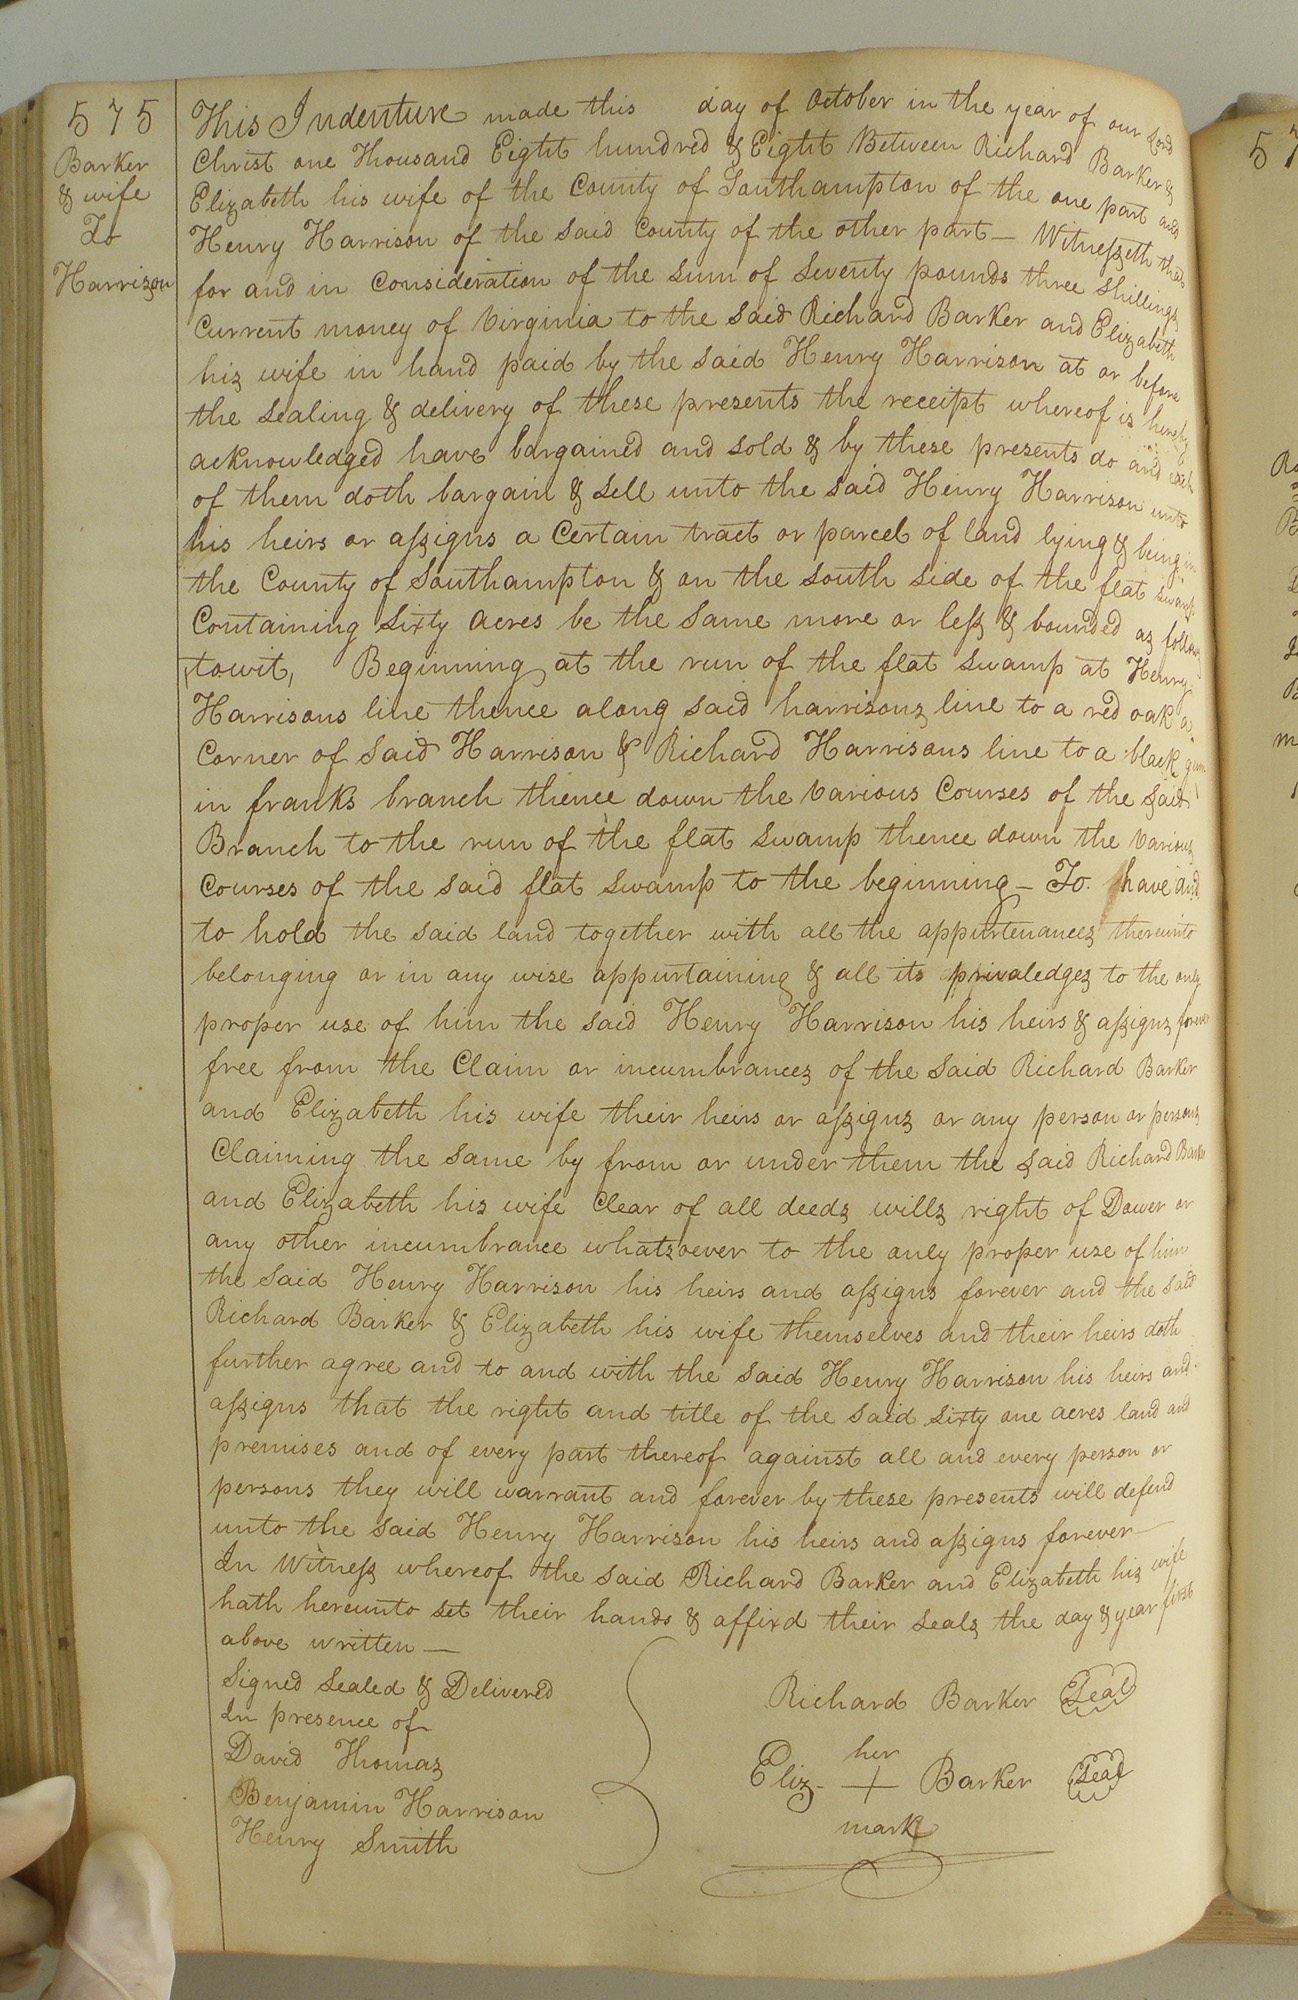 575
Barker
& wife
To
Harrison
This Indenture made this day of October in the year of our Lord
Christ one Thousand Eight hundred & Eight Between Richard Barker &
Elizabeth his wife of the County of Southampton of the one part and
Henry Harrison of the said County of the other part — Witnesseth that
for and in Consideration of the sum of seventy pounds three shillings
Current money of Virginia to the said Richard Barker and Elizabeth
his wife in hand paid by the said Henry Harrison at or before
the sealing & delivery of these presents the receipt whereof is hereby
acknowledged have bargained and sold & by these presents do and each
of them doth bargain & sell unto the said Henry Harrison unto
his heirs or assigns a Certain tract or parcel of land lying & being in
the County of Southampton & on the south side of the flat swamp
Containing sixty acres be the same more or less & bounded as follows
towit, Beginning at the run of the flat swamp at Henry
Harrisons line thence along said harrisons line to a red oak a
Corner of said Harrison & Richard Harrisons line to a black gum
in franks branch thence down the various Courses of the said
Branch to the run of the flat swamp thence down the various
Courses of the said flat swamp to the beginning — To have and
to hold the said land together with all the appurtenances thereunto
belonging or in any wise appurtaining & all its privaledges to the only
proper use of him the said Henry Harrison his heirs & assigns forever
free from the Claim or incumbrances of the said Richard Barker
and Elizabeth his wife their heirs or assigns or any person or persons
Claiming the same by from or under them the said Richard Barker
and Elizabeth his wife Clear of all deeds wills right of Dower or
any other incumbrance whatsoever to the only proper use of him
the said Henry Harrison his heirs and assigns forever and the said
Richard Barker & Elizabeth his wife themselves and their heirs doth
further agree and to and with the said Henry Harrison his heirs and
assigns that the right and title of the said sixty one acres land and
premises and of every part thereof against all and every person or
persons they will warrant and forever by these presents will defend
unto the said Henry Harrison his heirs and assigns forever —
In Witness whereof the said Richard Barker and Elizabeth his wife
hath hereunto set their hands & affixd their seals the day & year first
above written —
Signed Sealed & Delivered
In presence of
David Thomas
Benjamin Harrison
Henry Smith
Richard Barker Seal
her
Eliz. + Barker Seal
mark
57